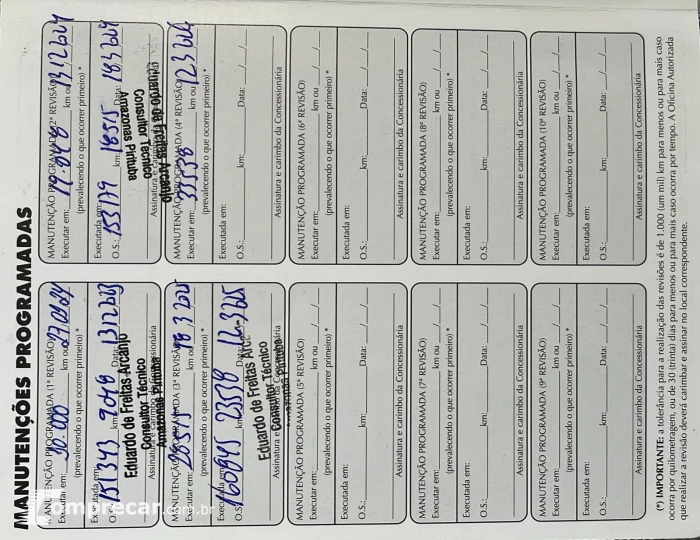 MANUTENÇÕES PROGRAMADAS
MANUTENÇÃO PROGRAMADA (1ª REVISÃO)
Executar em: 10.000 km ou
(prevalecendo o que ocorrer primeiro) *
Executada em:
O.S.: 151343 km: 9058 Data: 131223
Eduardo de Freitas Arcanjo
Consultor Técnico
Amazonas Pirituba
Assinatura e carimbo da Concessionária
MANUTENÇÃO PROGRAMADA (2ª REVISÃO)
Executar em: 19.048 km ou 13122024
(prevalecendo o que ocorrer primeiro) *
Executada em:
O.S.: 153719 km: 18515 Data: 183224
Eduardo de Freitas Arcanjo
Consultor Técnico
Amazonas Pirituba
Assinatura e carimbo da Concessionária
MANUTENÇÃO PROGRAMADA (3ª REVISÃO)
Executar em: 28515 km ou 18 3 2025
(prevalecendo o que ocorrer primeiro) *
Executada em:
O.S.: 160945 km: 23538 Data: 12-3225
Eduardo de Freitas Arc
Consultor Técnico
Amazonas Pirituba
Assinatura e carimbo da Concessionária
MANUTENÇÃO PROGRAMADA (4ª REVISÃO)
Executar em: 33538 km ou
(prevalecendo o que ocorrer primeiro) *
Executada em:
O.S.: km: Data: / /
Assinatura e carimbo da Concessionária
MANUTENÇÃO PROGRAMADA (5ª REVISÃO)
Executar em: km ou / /
(prevalecendo o que ocorrer primeiro) *
Executada em:
O.S.: km: Data: / /
Assinatura e carimbo da Concessionária
MANUTENÇÃO PROGRAMADA (6ª REVISÃO)
Executar em: km ou / /
(prevalecendo o que ocorrer primeiro) *
Executada em:
O.S.: km: Data: / /
Assinatura e carimbo da Concessionária
MANUTENÇÃO PROGRAMADA (7ª REVISÃO)
Executar em: km ou / /
(prevalecendo o que ocorrer primeiro) *
Executada em:
O.S.: km: Data: / /
Assinatura e carimbo da Concessionária
MANUTENÇÃO PROGRAMADA (8ª REVISÃO)
Executar em: km ou / /
(prevalecendo o que ocorrer primeiro) *
Executada em:
O.S.: km: Data: / /
Assinatura e carimbo da Concessionária
MANUTENÇÃO PROGRAMADA (9ª REVISÃO)
Executar em: km ou / /
(prevalecendo o que ocorrer primeiro) *
Executada em:
O.S.: km: Data: / /
Assinatura e carimbo da Concessionária
MANUTENÇÃO PROGRAMADA (10ª REVISÃO)
Executar em: km ou / /
(prevalecendo o que ocorrer primeiro) *
Executada em:
O.S.: km: Data: / /
Assinatura e carimbo da Concessionária
(*) IMPORTANTE: a tolerância para a realização das revisões é de 1.000 (um mil) km para menos ou para mais caso
ocorra por quilometragem, ou de 30 (trinta) dias para menos ou para mais caso ocorra por tempo. A Oficina Autorizada
que realizar a revisão deverá carimbar e assinar no local correspondente.
comprecar.com.br